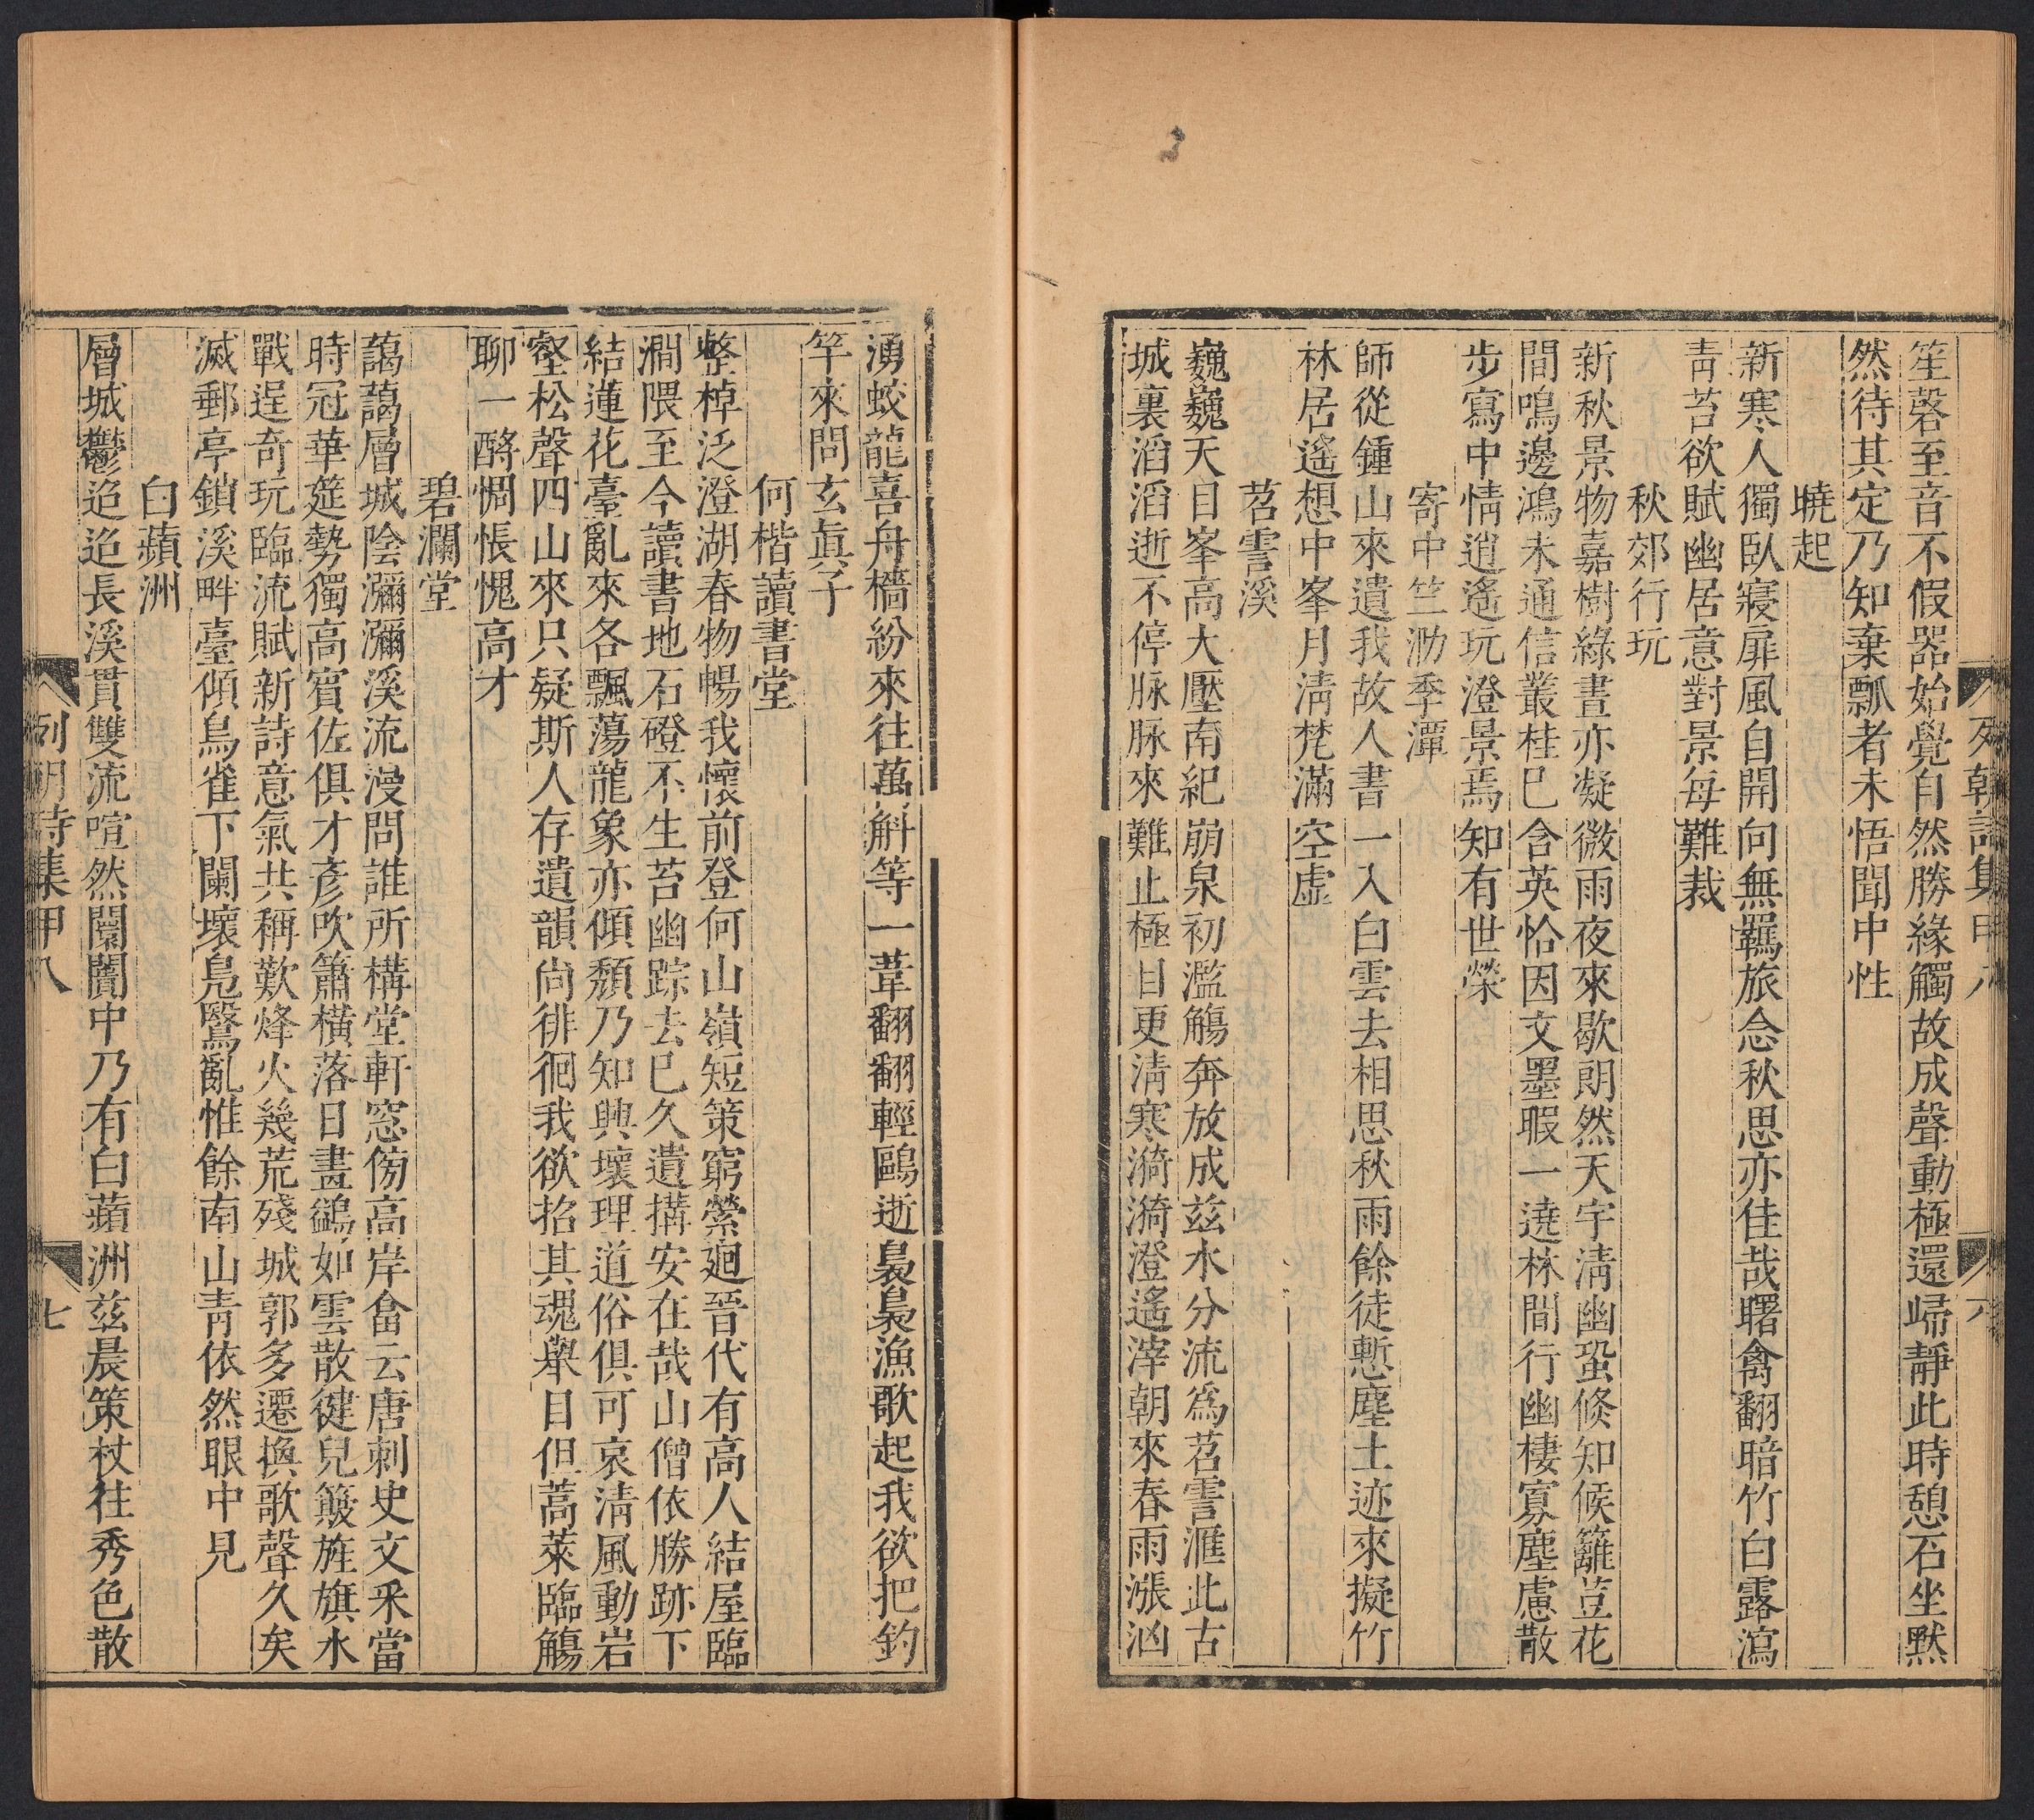 列朝詩集甲八
六
笙磬至音不假器始覺自然勝緣觸故成聲動極還歸靜此時憩石坐默
然待其定乃知棄瓢者未悟聞中性
曉起
新寒人獨臥寢扉風自開向無羈旅念秋思亦佳哉曙禽翻暗竹白露瀉
青苔欲賦幽居意對景每難裁
秋郊行玩
新秋景物嘉樹綠晝亦凝微雨夜來歇朗然天宇清幽蛩倐知候籬荳花
間鳴邊鴻未通信叢桂巳含英恰因文墨暇一遶林間行幽棲寡塵慮散
步寫中情逍遙玩澄景焉知有世榮
寄中竺泐季潭
師從鍾山來遺我故人書一入白雲去相思秋雨餘徒慙塵土迹來擬竹
林居遙想中峯月清梵滿空虛
苕霅溪
巍巍天目峯高大壓南紀崩泉初濫觴奔放成兹水分流為苕霅滙此古
城裏滔滔逝不停脉脉來難止極目更清寒漪漪澄遙滓朝來春雨漲洶
湧蛟龍喜舟檣紛來往萬斛等一葦翻翻輕鷗逝裊裊漁歌起我欲把釣
竿來問玄眞子
何楷讀書堂
整棹泛澄湖春物暢我懷前登何山嶺短策窮縈廻晉代有高人結屋臨
澗隈至今讀書地石磴不生苔幽踪去巳久遺搆安在哉山僧依勝跡下
結蓮花臺亂來各飄蕩龍象亦傾頽乃知興壞理道俗俱可哀清風動岩
壑松聲四山來只疑斯人存遺韻尚徘徊我欲招其魂舉目但蒿萊臨觴
聊一酹惆悵愧高才
碧瀾堂
藹藹層城陰瀰瀰溪流漫問誰所構堂軒窓傍高岸畣云唐刺史文采當
時冠華筵勢獨高賓佐俱才彥吹簫橫落日畫鷁如雲散健兒簸旌旗水
戰逞奇玩臨流賦新詩意氣共稱歎烽火幾荒殘城郭多遷換歌聲久矣
滅郵亭鎖溪畔臺傾鳥雀下闌壞鳧鷖亂惟餘南山青依然眼中見
白蘋洲
層城鬱迢迢長溪貫雙流喧然闤闠中乃有白蘋洲兹晨策杖往秀色散
列朝詩集甲八
七